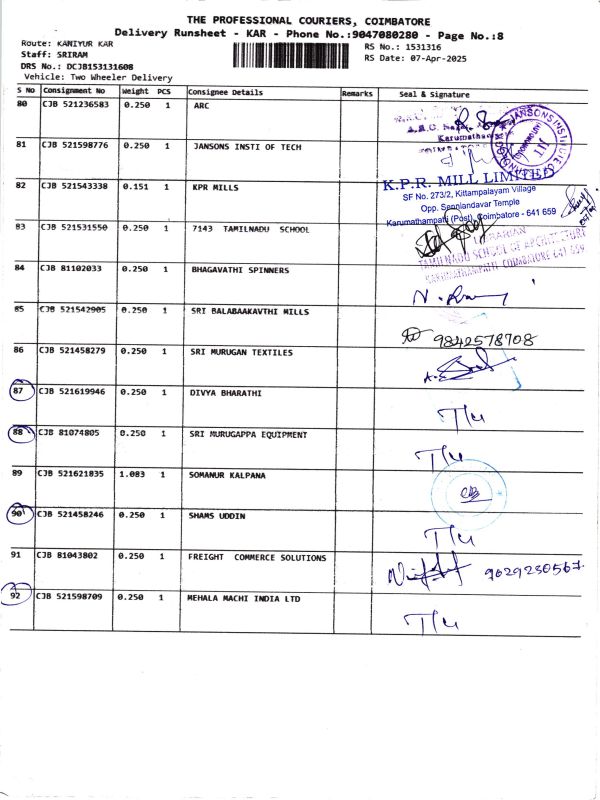 THE PROFESSIONAL COURIERS, COIMBATORE
Delivery Runsheet - KAR - Phone No.:9047080280 - Page No.:8
Route: KANIYUR KAR
RS No.: 1531316
Staff: SRIRAM
RS Date: 07-Apr-2025
DRS No.: DCJB153131608
Vehicle: Two Wheeler Delivery
S No Consignment No Weight PCS Consignee Details Remarks Seal & Signature
80 CJB 521236583 0.250 1 ARC
81 CJB 521598776 0.250 1 JANSONS INSTI OF TECH
82 CJB 521543338 0.151 1 KPR MILLS
K.P.R. MILL LIMITED
SF No. 273/2, Kittampalayam Village
Opp. Senniandavar Temple
Karumathampatti (Post), Coimbatore - 641 659
83 CJB 521531550 0.250 1 7143 TAMILNADU SCHOOL
TAMILNADU SCHOOL OF ARCHITECTURE
84 CJB 81102033 0.250 1 BHAGAVATHI SPINNERS
85 CJB 521542905 0.250 1 SRI BALABAAKAVTHI MILLS
9842578708
86 CJB 521458279 0.250 1 SRI MURUGAN TEXTILES
87 CJB 521619946 0.250 1 DIVYA BHARATHI
88 CJB 81074805 0.250 1 SRI MURUGAPPA EQUIPMENT
89 CJB 521621835 1.083 1 SOMANUR KALPANA
90 CJB 521458246 0.250 1 SHAMS UDDIN
91 CJB 81043802 0.250 1 FREIGHT COMMERCE SOLUTIONS
9029230567
92 CJB 521598709 0.250 1 MEHALA MACHI INDIA LTD